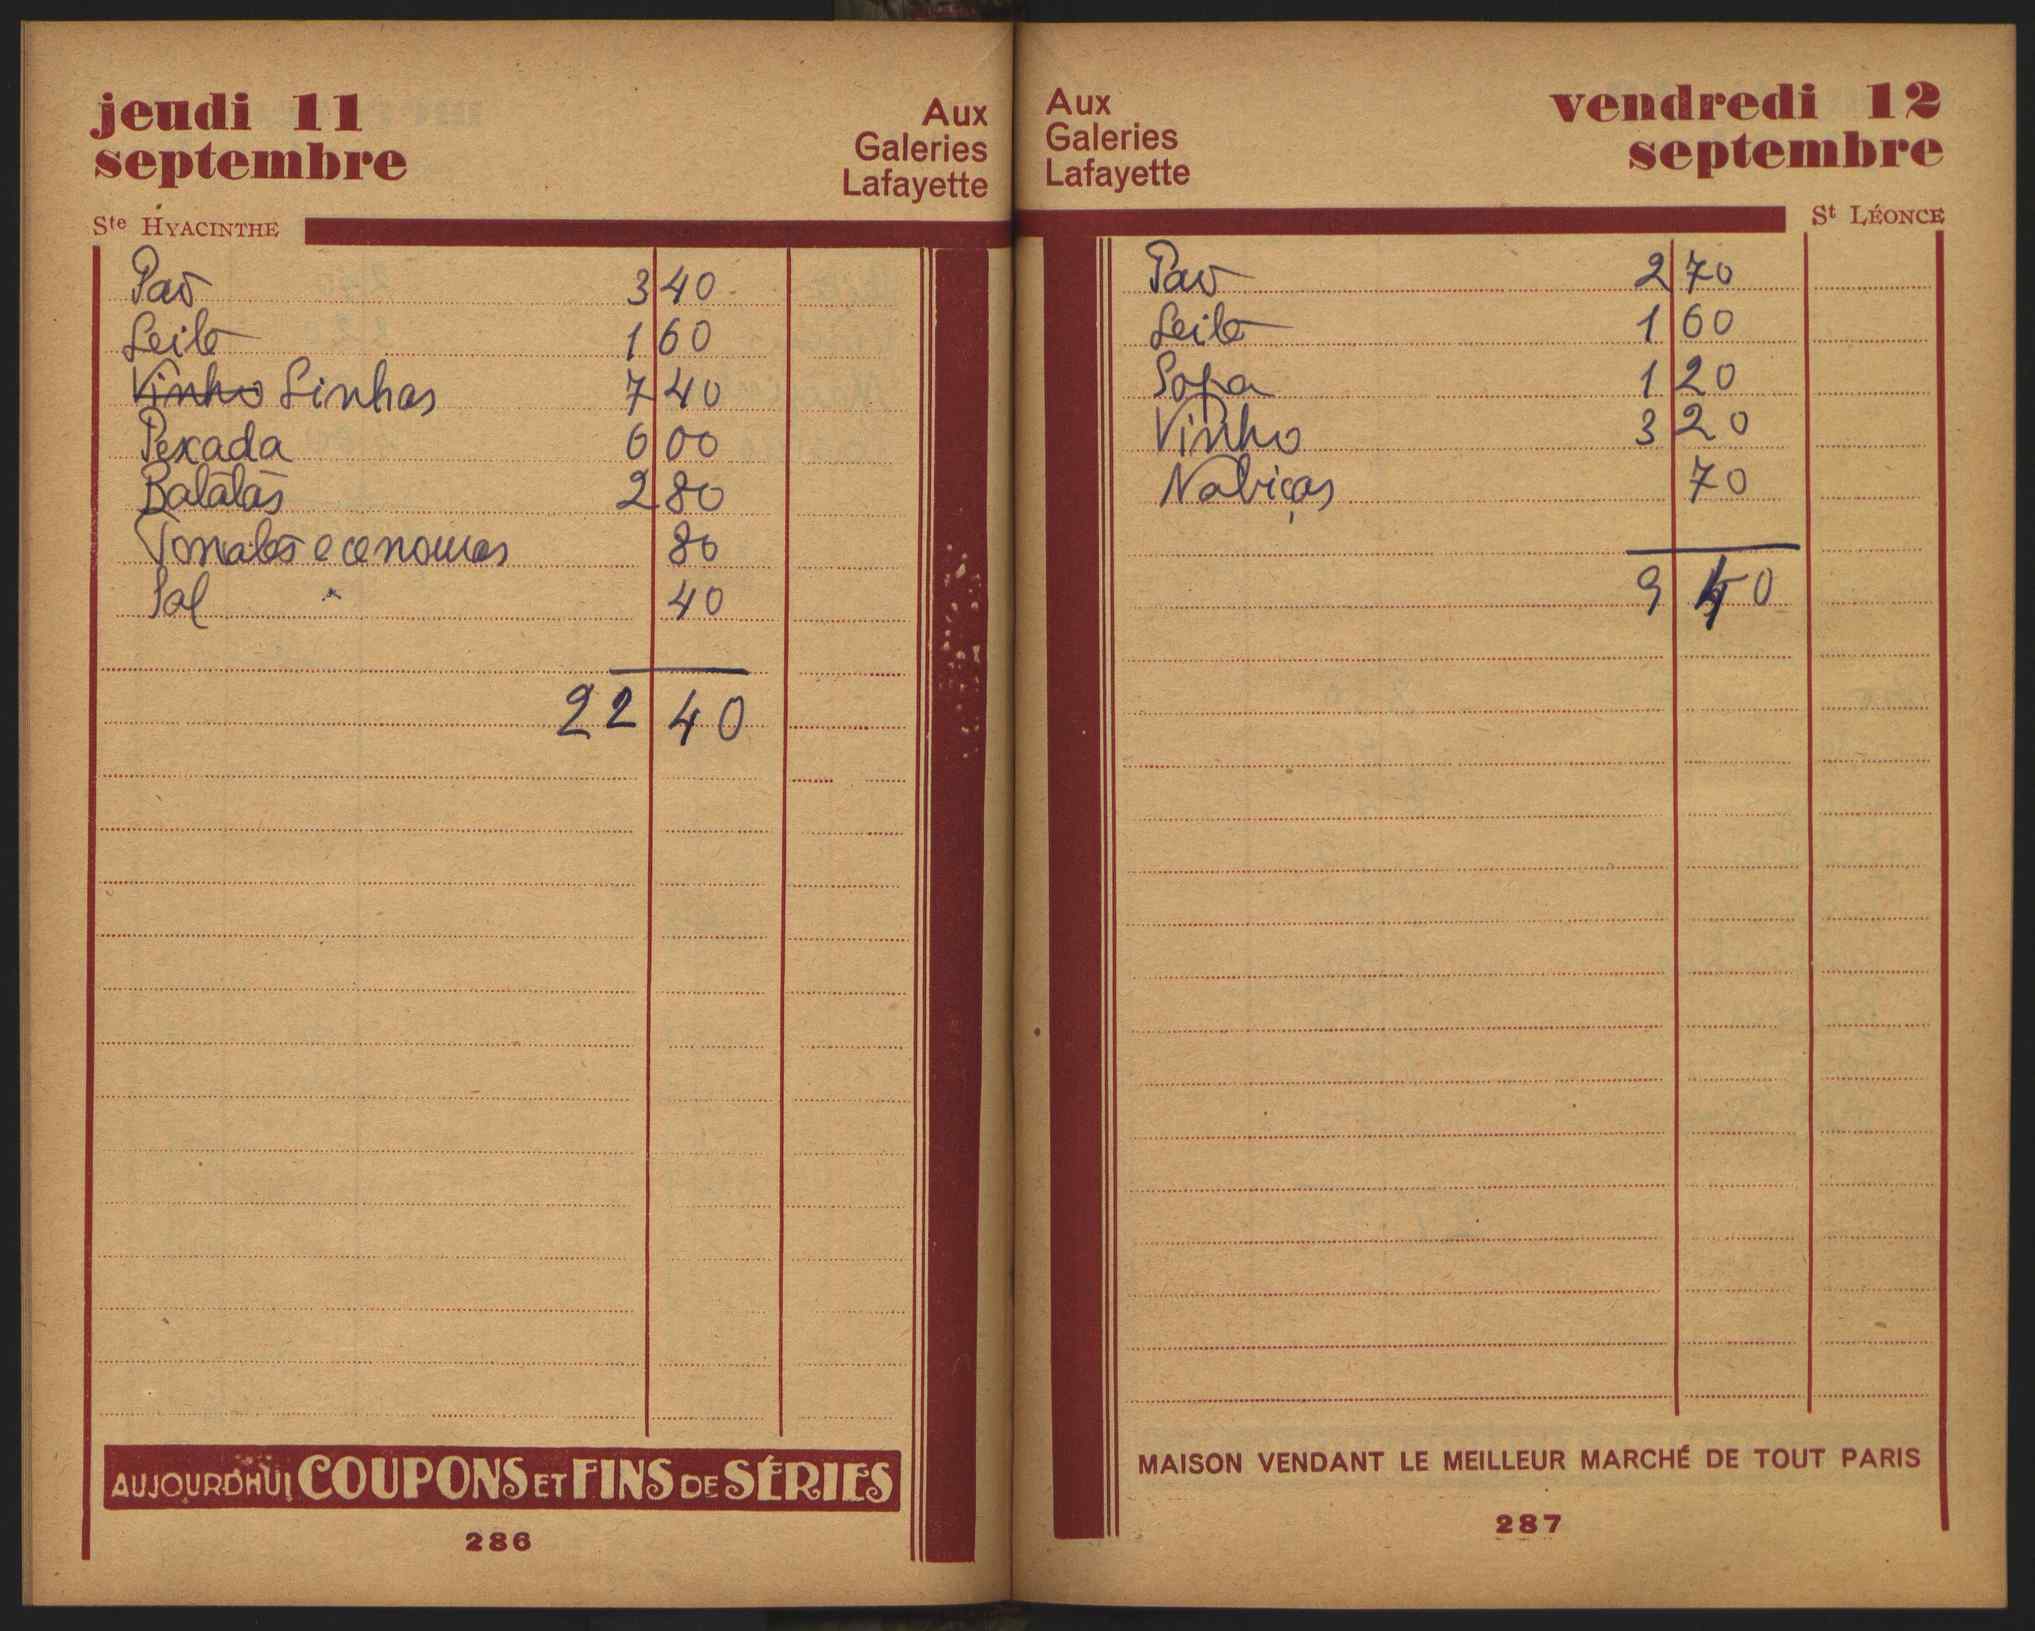 jeudi 11
septembre
Aux
Galeries
Lafayette
Ste HYACINTHE
Pão 3 40
Leite 1 60
Vinho Linhas 7 40
Pexada 6 00
Batatas 2 80
Tomates e cenouras 80
Sal 40
22 40
AUJOURD'HUI COUPONS ET FINS DE SÉRIES
286
Aux
Galeries
Lafayette
vendredi 12
septembre
St LÉONCE
Pão 2 70
Leite 1 60
Sopa 1 20
Vinho 3 20
Nabiças 70
9 40
MAISON VENDANT LE MEILLEUR MARCHÉ DE TOUT PARIS
287